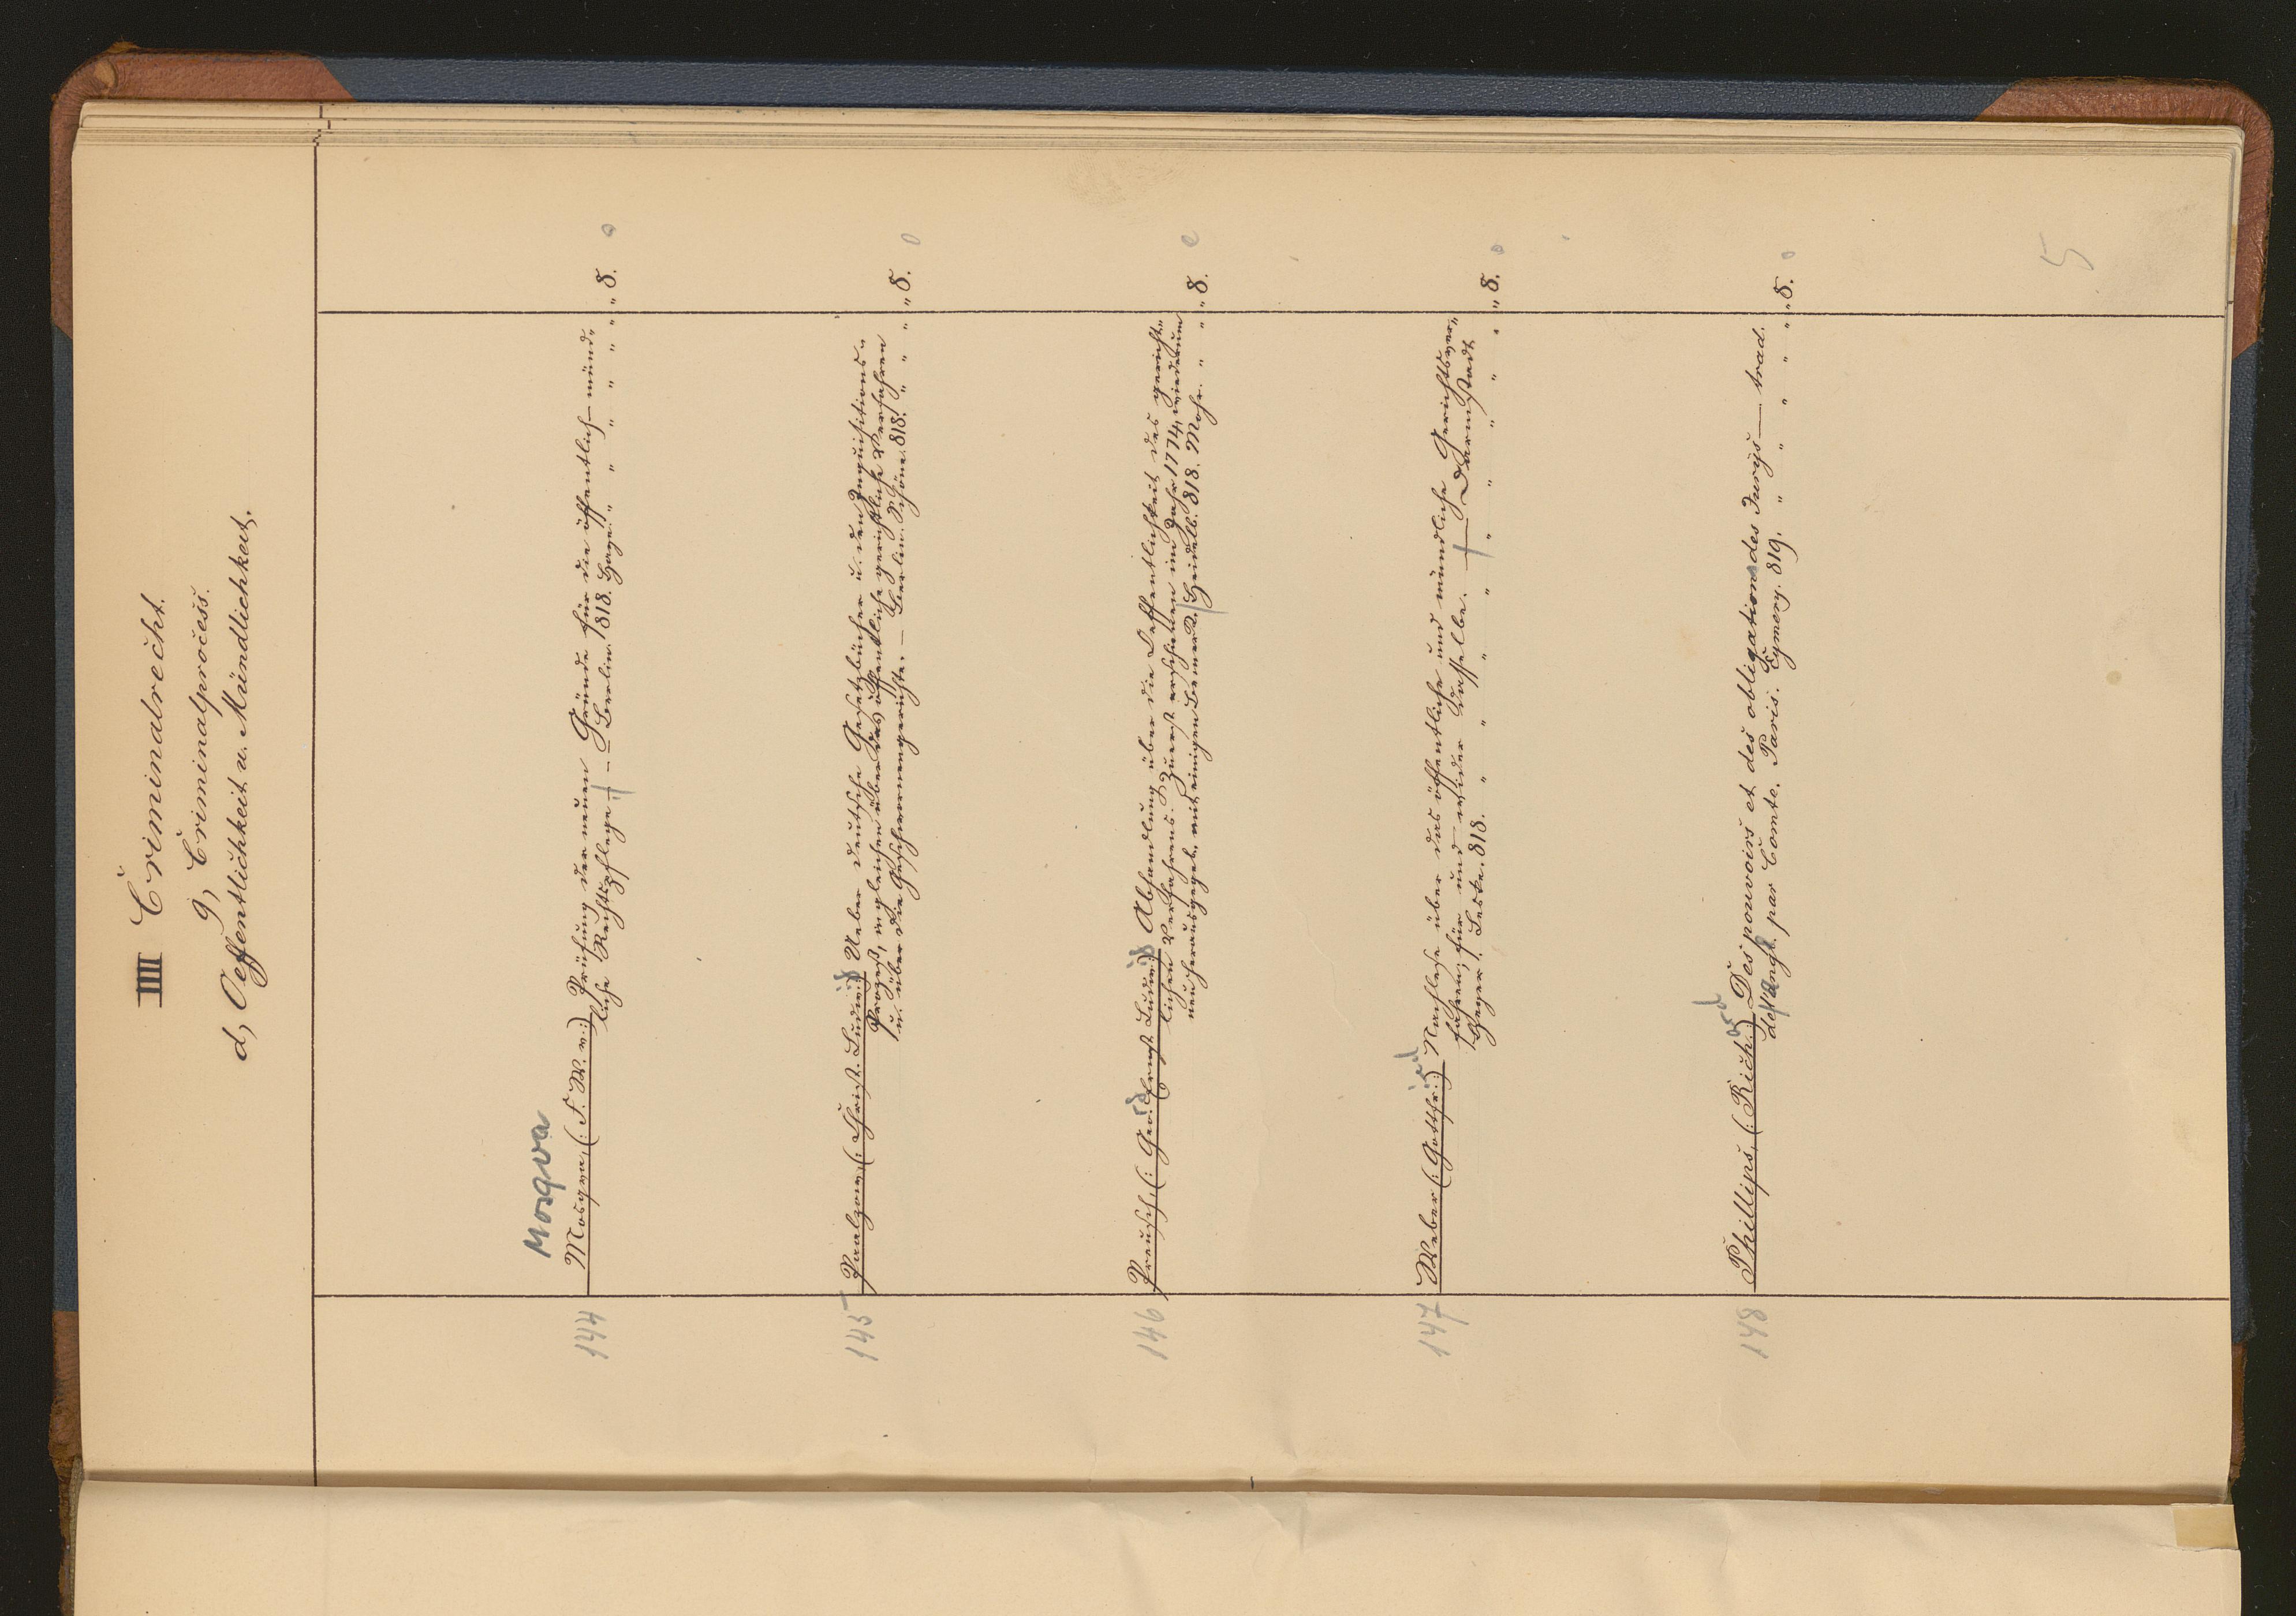 IIII Criminalrecht.
g, Criminalprocess.
d, Oeffentlichkeit u. Mündlichkeit.
Mosqva
144 Mosqva, (: F. W. v.:) Prüfung der neuen Gründe für die öffentlich-münd„
liche Rechtspflege. — Berlin. 818. Hayn. „ „ „ „ „ 8.
145 Paalzow, (: Christ. Ludw:) Ueber deutsche Gesetzbücher u. den Inquisitions„
Prozeß, ingleichen über das öffentliche gerichtliche Verfahren
u. über die Geschwornengerichte. — Berlin. Schöne. 818. „ „ „ 8.
146 Preuschen, (: Geo. Ernst Ludw:) Abhandlung über die Oeffentlichkeit des gericht„
lichen Verfahrens. Zuerst erschienen im Jahr 1774, wiederum
neu herausgegeb. mit einigen Bemerk. Heidelb. 818. Mohr. „ „ „ 8.
147 Weber (: Gottfr:) Nachlese über das öffentliche und mündliche Gerichtsver„
fahren, für und wider dasselbe. — Darmstadt
Heyer / Leske. 818. „ „ „ „ „ „ „ „ 8.
148 Phillips, (: Rich:) Des pouvoirs et des obligations des Jurys — trad.
de l'angl. par Comte. Paris. Eymery. 819. „ „ „ „ „ 8.
5